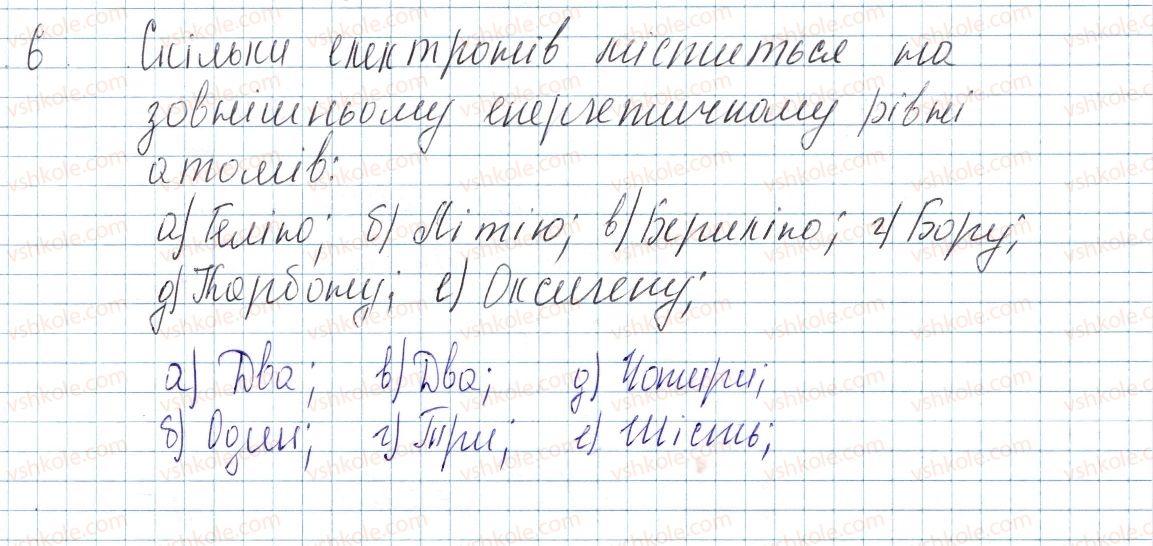 6 Скільки електронів міститься на
зовнішньому енергетичному рівні
атомів:
а) Гелію; б) Літію; в) Берилію; г) Бору;
д) Карбону; е) Оксигену;
а) Два; в) Два; д) Чотири;
б) Один; г) Три; е) Шість;
vshkole.com